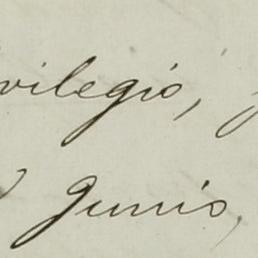 vilegio,
Junio,